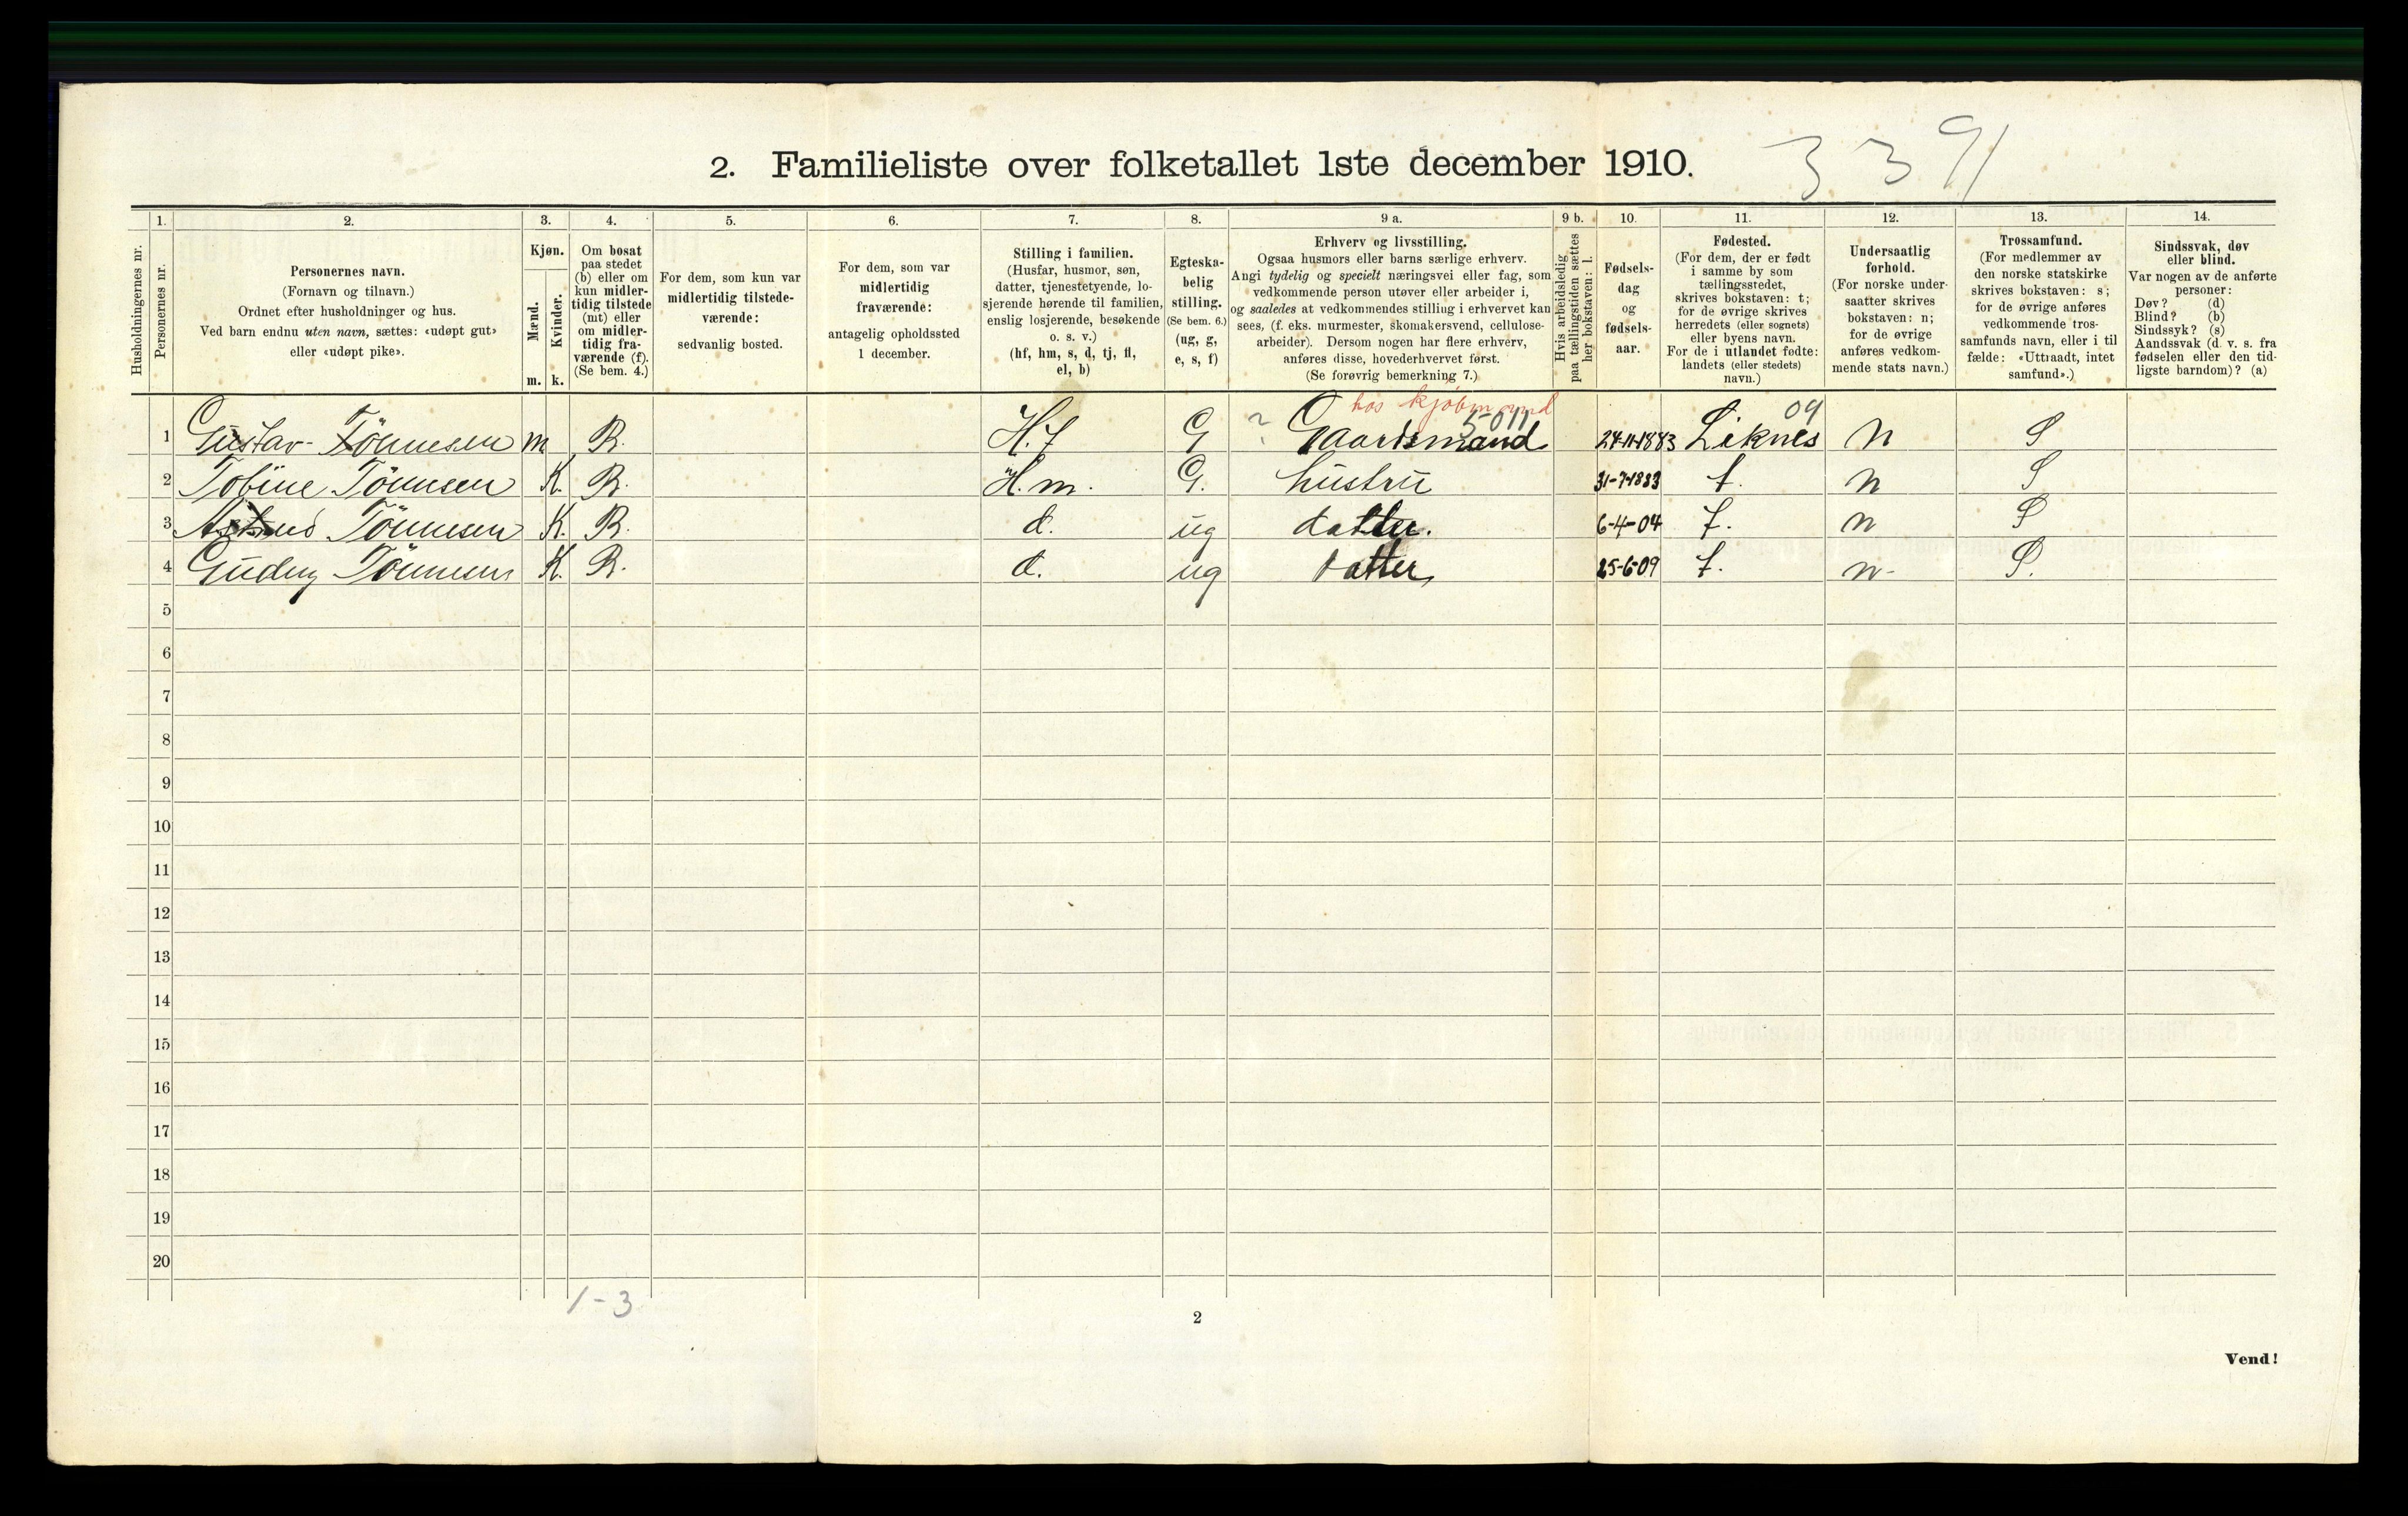 3 3 91
2. Familieliste over folketallet 1ste december 1910.
1. 2. 3. 4. 5. 6. 7. 8. 9 a. 9 b. 10. 11. 12. 13. 14.
Husholdningernes nr.
Personernes nr.
Personernes navn.
(Fornavn og tilnavn.)
Ordnet efter husholdninger og hus.
Ved barn endnu uten navn, sættes: «udøpt gut»
eller «udøpt pike».
Kjøn.
Mænd.
Kvinder.
m. k.
Om bosat
paa stedet
(b) eller om
kun midler-
tidig tilstede
(mt) eller
om midler-
tidig fra-
værende (f).
(Se bem. 4.)
For dem, som kun var
midlertidig tilstede-
værende:
sedvanlig bosted.
For dem, som var
midlertidig
fraværende:
antagelig opholdssted
1 december.
Stilling i familien.
(Husfar, husmor, søn,
datter, tjenestetyende, lo-
sjerende hørende til familien,
enslig losjerende, besøkende
o. s. v.)
(hf, hm, s, d, tj, fl,
el, b)
Egteska-
belig
stilling.
(Se bem. 6.)
(ug, g,
e, s, f)
Erhverv og livsstilling.
Ogsaa husmors eller barns særlige erhverv.
Angi tydelig og specielt næringsvei eller fag, som
vedkommende person utøver eller arbeider i,
og saaledes at vedkommendes stilling i erhvervet kan
sees, (f. eks. murmester, skomakersvend, cellulose-
arbeider). Dersom nogen har flere erhverv,
anføres disse, hovederhvervet først.
(Se forøvrig bemerkning 7.)
Hvis arbeidsledig
paa tællingstiden sættes
her bokstaven: l.
Fødsels-
dag
og
fødsels-
aar.
Fødested.
(For dem, der er født
i samme by som
tællingsstedet,
skrives bokstaven: t;
for de øvrige skrives
herredets (eller sognets)
eller byens navn.
For de i utlandet fødte:
landets (eller stedets)
navn.)
Undersaatlig
forhold.
(For norske under-
saatter skrives
bokstaven: n;
for de øvrige
anføres vedkom-
mende stats navn.)
Trossamfund.
(For medlemmer av
den norske statskirke
skrives bokstaven: s;
for de øvrige anføres
vedkommende tros-
samfunds navn, eller i til
fælde: «Uttraadt, intet
samfund».)
Sindssvak, døv
eller blind.
Var nogen av de anførte
personer:
Døv? (d)
Blind? (b)
Sindssyk? (s)
Aandssvak (d. v. s. fra
fødselen eller den tid-
ligste barndom)? (a)
hos kjøbmand
? 5-011 09
1 Gustav Tönnesen m B. H.f G Gaardsmand 24-11-1883 Liknes n S
2 Tobine Tönnsen K. B. H.m. G. hüstrü 31-7-1883 t. n S
3 Tönnesen K. B. d. ug datter. 6-4-04 t. n S
4 Gudny Tönnesen K. B. d. ug datter 25-6-09 t. n- S.
5
6
7
8
9
10
11
12
13
14
15
16
17
18
19
20
1-3
2
Vend!